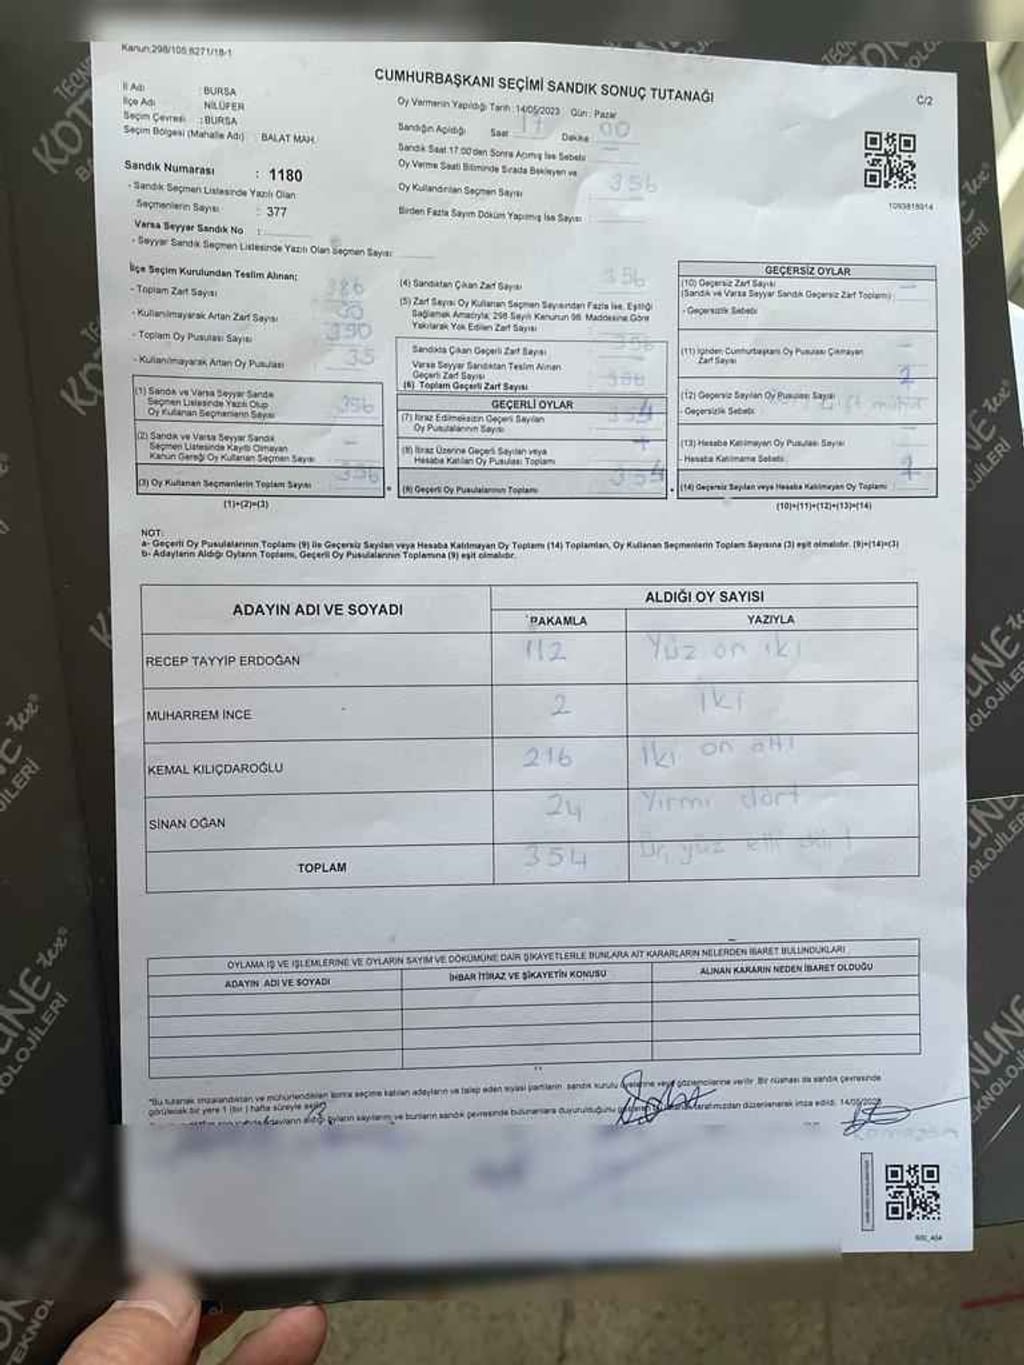 Kanun:298/105;6271/18-1
CUMHURBAŞKANI SEÇİMİ SANDIK SONUÇ TUTANAĞI
C/2
İl Adı : BURSA
İlçe Adı : NİLÜFER
Seçim Çevresi : BURSA
Seçim Bölgesi (Mahalle Adı) : BALAT MAH.
Oy Vermenin Yapıldığı Tarih : 14/05/2023 Gün : Pazar
Sandığın Açıldığı Saat 17 Dakika 00
Sandık Saat 17:00'den Sonra Açılmış İse Sebebi —
Oy Verme Saati Bitiminde Sırada Bekleyen ve
Oy Kullandırılan Seçmen Sayısı 356
Birden Fazla Sayım Döküm Yapılmış İse Sayısı :
1093818014
Sandık Numarası : 1180
- Sandık Seçmen Listesinde Yazılı Olan
Seçmenlerin Sayısı : 377
Varsa Seyyar Sandık No :
- Seyyar Sandık Seçmen Listesinde Yazılı Olan Seçmen Sayısı:
İlçe Seçim Kurulundan Teslim Alınan;
- Toplam Zarf Sayısı 386
- Kullanılmayarak Artan Zarf Sayısı 30
- Toplam Oy Pusulası Sayısı 390
- Kullanılmayarak Artan Oy Pusulası 35
(1) Sandık ve Varsa Seyyar Sandık
Seçmen Listesinde Yazılı Olup
Oy Kullanan Seçmenlerin Sayısı 356
(2) Sandık ve Varsa Seyyar Sandık
Seçmen Listesinde Kayıtlı Olmayan
Kanun Gereği Oy Kullanan Seçmen Sayısı —
(3) Oy Kullanan Seçmenlerin Toplam Sayısı 356
(1)+(2)=(3)
(4) Sandıktan Çıkan Zarf Sayısı 356
(5) Zarf Sayısı Oy Kullanan Seçmen Sayısından Fazla İse, Eşitliği
Sağlamak Amacıyla; 298 Sayılı Kanunun 98. Maddesine Göre
Yakılarak Yok Edilen Zarf Sayısı —
Sandıkta Çıkan Geçerli Zarf Sayısı 356
Varsa Seyyar Sandıktan Teslim Alınan
Geçerli Zarf Sayısı —
(6) Toplam Geçerli Zarf Sayısı 356
GEÇERLİ OYLAR
(7) İtiraz Edilmeksizin Geçerli Sayılan
Oy Pusulalarının Sayısı 354
(8) İtiraz Üzerine Geçerli Sayılan veya
Hesaba Katılan Oy Pusulası Toplamı
(9) Geçerli Oy Pusulalarının Toplamı 354
GEÇERSİZ OYLAR
(10) Geçersiz Zarf Sayısı
(Sandık ve Varsa Seyyar Sandık Geçersiz Zarf Toplamı) —
- Geçersizlik Sebebi
(11) İçinden Cumhurbaşkanı Oy Pusulası Çıkmayan
Zarf Sayısı —
(12) Geçersiz Sayılan Oy Pusulası Sayısı 2
- Geçersizlik Sebebi çift mühür
(13) Hesaba Katılmayan Oy Pusulası Sayısı —
- Hesaba Katılmama Sebebi
(14) Geçersiz Sayılan veya Hesaba Katılmayan Oy Toplamı 2
(10)+(11)+(12)+(13)=(14)
NOT:
a- Geçerli Oy Pusulalarının Toplamı (9) ile Geçersiz Sayılan veya Hesaba Katılmayan Oy Toplamı (14) Toplamları, Oy Kullanan Seçmenlerin Toplam Sayısına (3) eşit olmalıdır. (9)+(14)=(3)
b- Adayların Aldığı Oyların Toplamı, Geçerli Oy Pusulalarının Toplamına (9) eşit olmalıdır.
ADAYIN ADI VE SOYADI
ALDIĞI OY SAYISI
RAKAMLA YAZIYLA
RECEP TAYYİP ERDOĞAN 112 Yüz on iki
MUHARREM İNCE 2 iki
KEMAL KILIÇDAROĞLU 216 İki on altı
SİNAN OĞAN 24 Yirmi dört
TOPLAM 354 yüz elli
OYLAMA İŞ VE İŞLEMLERİNE VE OYLARIN SAYIM VE DÖKÜMÜNE DAİR ŞİKAYETLERLE BUNLARA AİT KARARLARIN NELERDEN İBARET BULUNDUKLARI
ADAYIN ADI VE SOYADI İHBAR İTİRAZ VE ŞİKAYETİN KONUSU ALINAN KARARIN NEDEN İBARET OLDUĞU
*Bu tutanak imzalandıktan ve mühürlendikten sonra seçime katılan adayların ve talep eden siyasi partilerin sandık kurulu üyelerine veya gözlemcilerine verilir. Bir nüshası da sandık çevresinde
görülecek bir yere 1 (bir) hafta süreyle asılır.
adayların aldığı oyların sayılarını ve bunların sandık çevresinde bulunanlara duyurulduğunu tarafımızdan düzenlenerek imza edildi. 14/05/2023